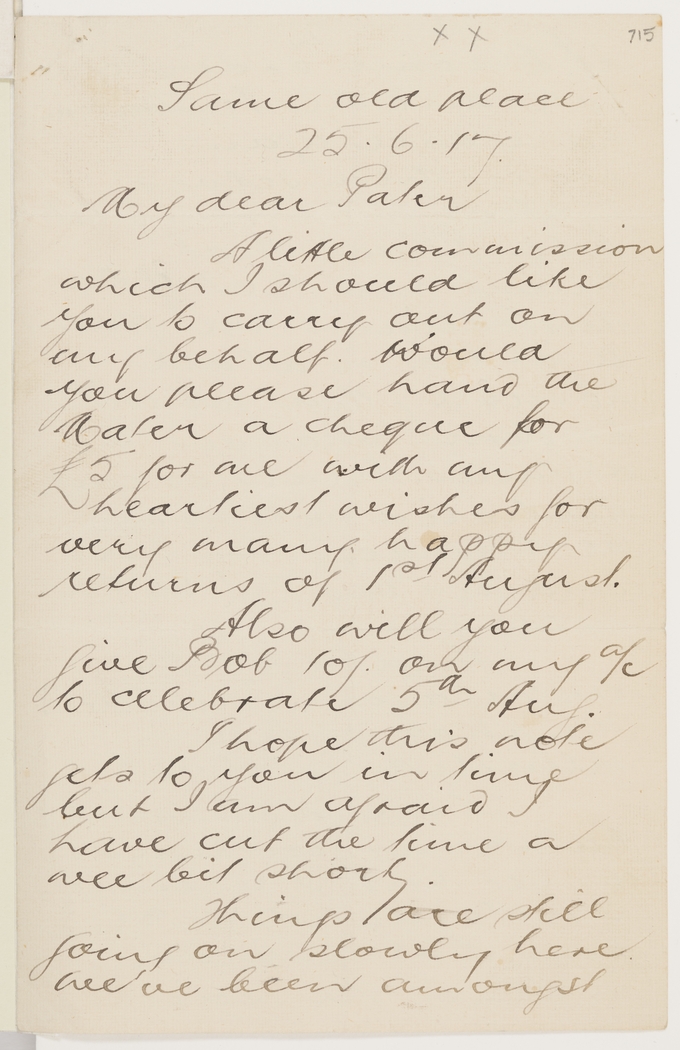 x x
715
Same old place
25.6.17.
My dear Pater
A little commission
which I should like
you to carry out on
my behalf. Would
you please hand the
Mater a cheque for
£5 for me with my
heartiest wishes for
very many happy
returns of 1st August.
Also will you
give Bob 10/. on my a/c
to celebrate 5th Aug.
I hope this note
gets to you in time
but I am afraid I
have cut the time a
wee bit short.
Things are still
going on slowly here.
we've been amongst